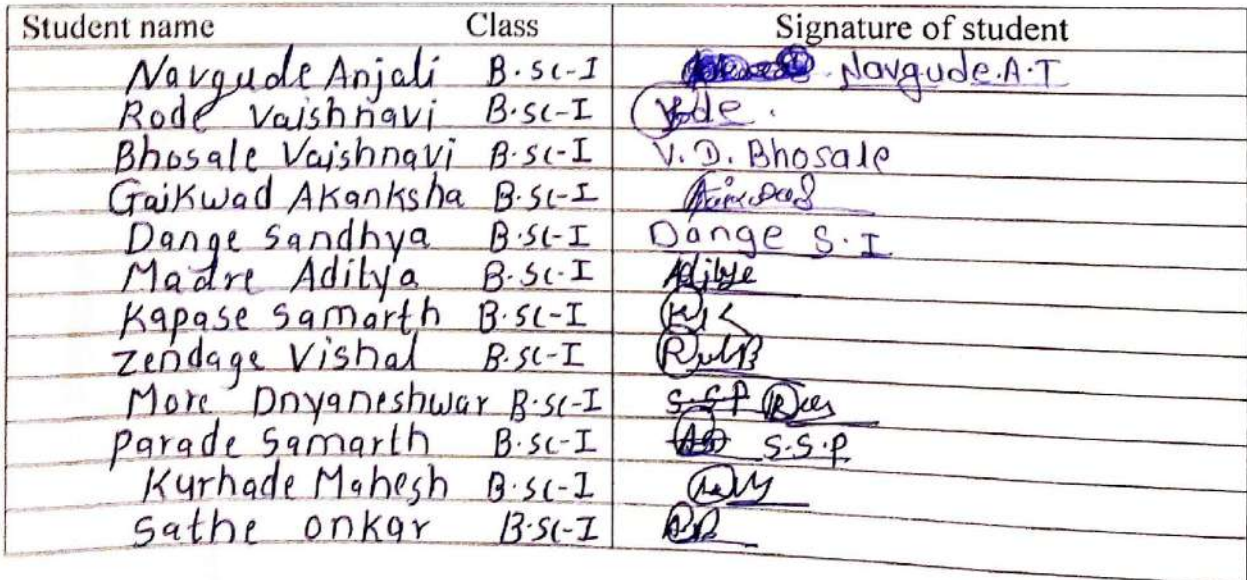 Student name Class Signature of student
Navgude Anjali B.sc-I Navgude.A.T
Rode Vaishnavi B.sc-I
Bhosale Vaishnavi B.sc-I V.D. Bhosale
Gaikwad Akanksha B.sc-I
Dange Sandhya B.sc-I Dange S.I
Madre Aditya B.sc-I
Kapase Samarth B.sc-I
Zendage Vishal B.sc-I
More Dnyaneshwar B.sc-I S.S.P
Parade Samarth B.sc-I S.S.P
Kurhade Mahesh B.sc-I
Sathe Onkar B.sc-I